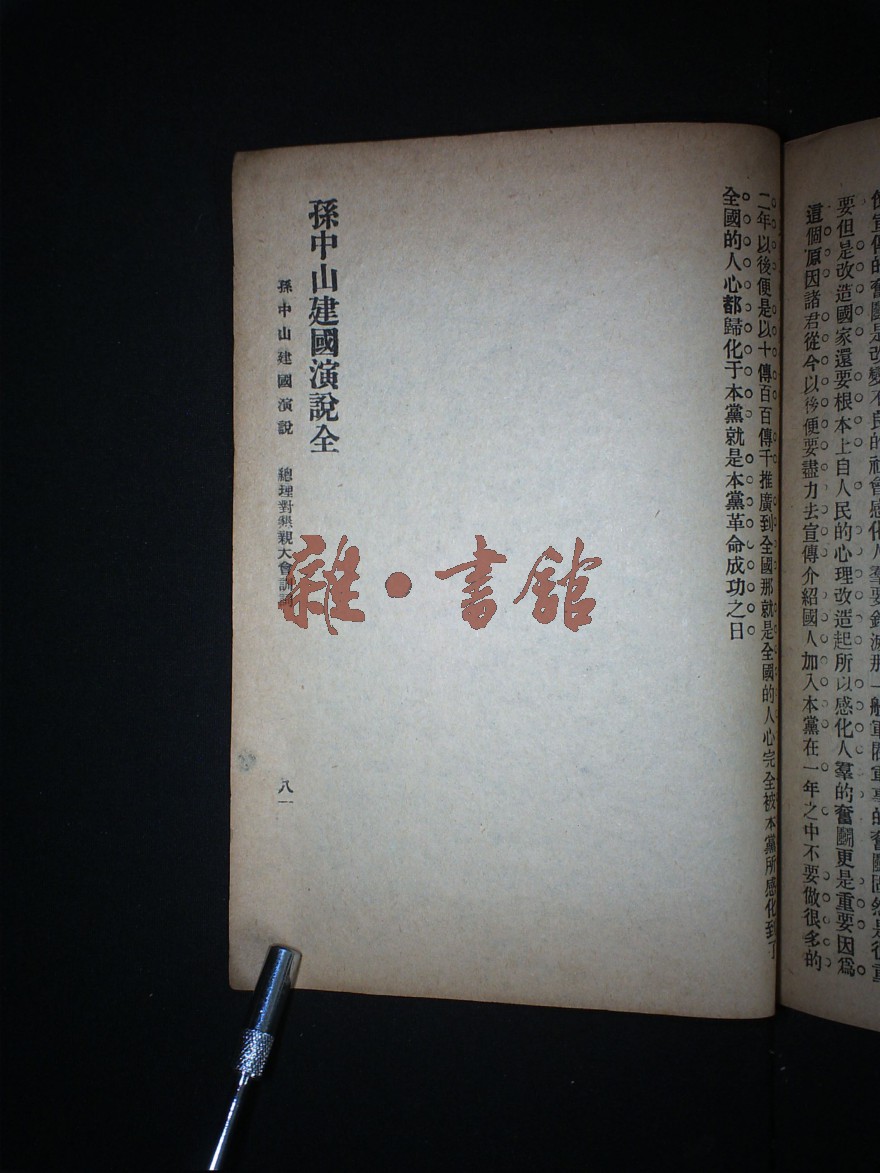 宣傳的奮鬪是改變不良的社會感化人羣要銷滅那一般軍閥軍事的奮鬪固然是很重
要但是改造國家還要根本上自人民的心理改造起所以感化人羣的奮鬪更是重要因爲
這個原因諸君從今以後便要盡力去宣傳介紹國人加入本黨在一年之中不要做很多的
二年以後便是以十傳百百傳千推廣到全國那就是全國的人心完全被本黨所感化到了
全國的人心都歸化于本黨就是本黨革命成功之日
孫中山建國演說全
孫中山建國演說 總理對懇親大會訓詞 八一
雜·書館